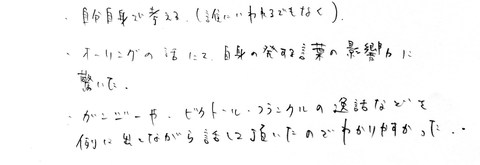 ・自分自身で考える。(誰にいわれるでもなく)。
・オーリングの話にて、自身の発する言葉の影響力に
驚いた。
・ガンジーや、ビクトール・フランクルの逸話などを
例に出しながら話して頂いたのでわかりやすかった..